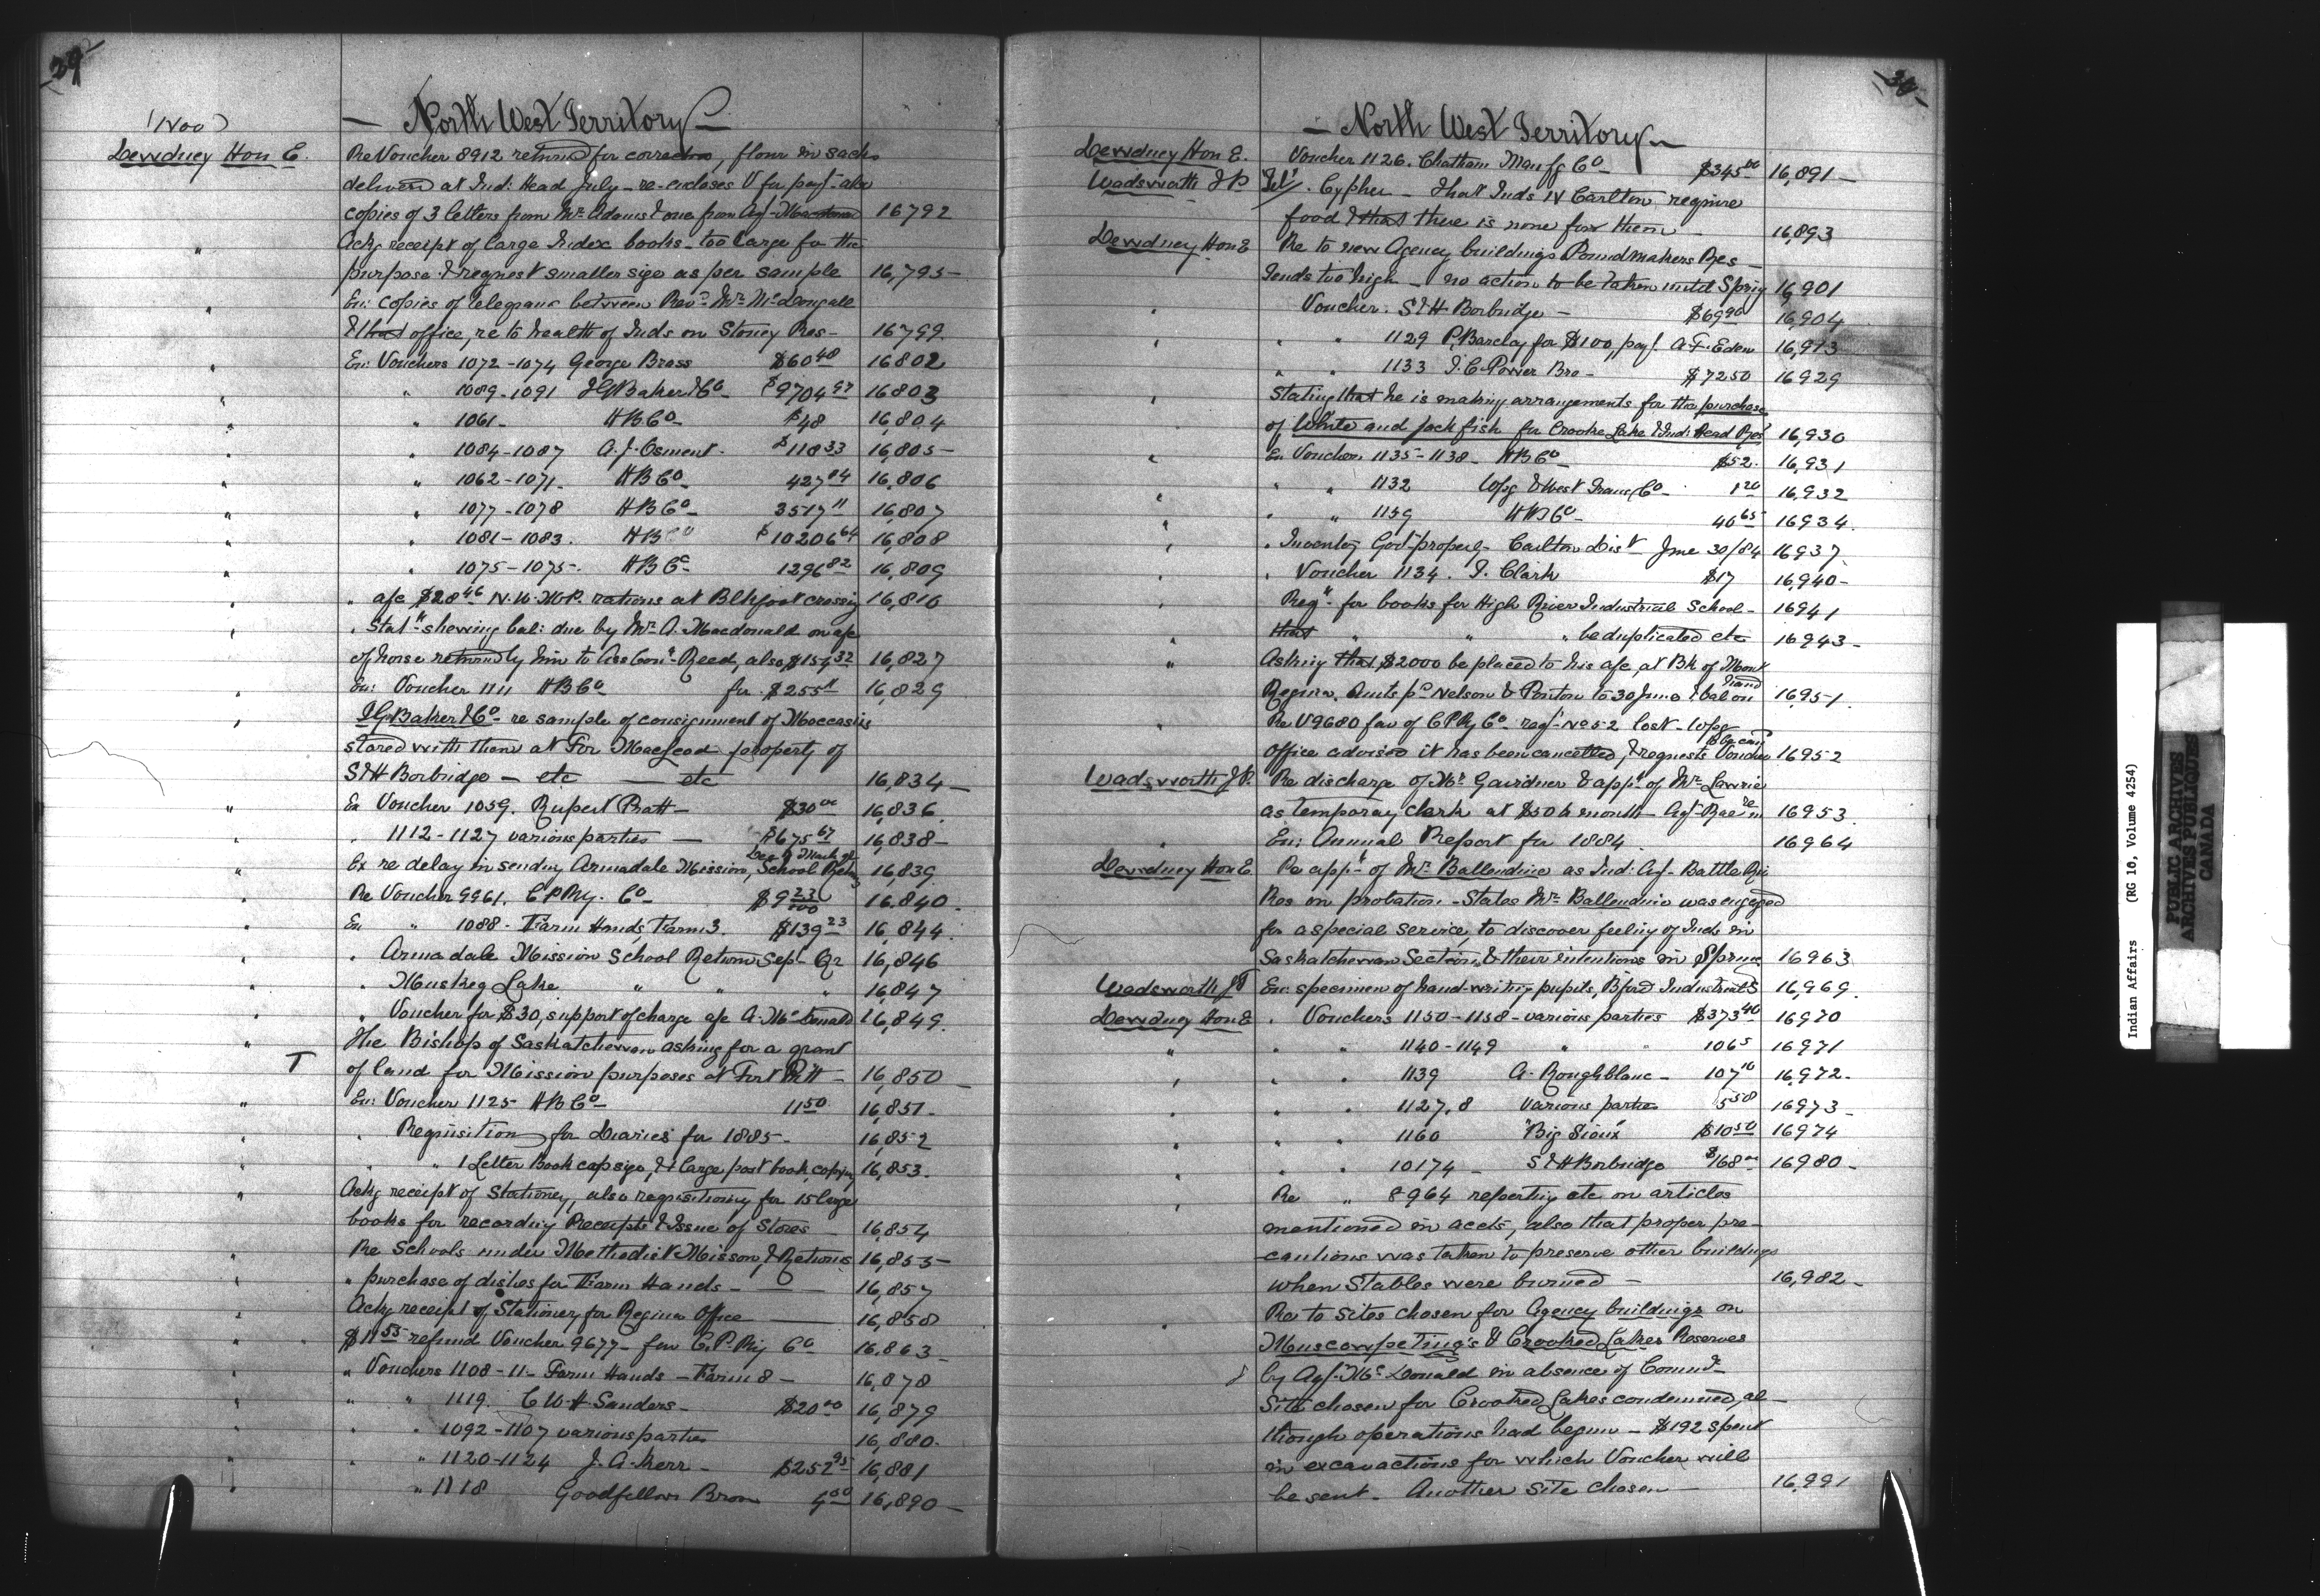 29
(Nov)
— North West Territory —
Dewdney Hon E.
Re Voucher 8912 returnd for correction, flour in sacks
deliverd at Ind: Head July - re-encloses V for payt - also
copies of 3 letters from Mr Adams & one from Agt 16792
" Ackg receipt of large Index books - too large for the
purpose & request smaller size as per sample 16,795 -
" En: copies of telegrams between Revd Mr McDougall
& that office, re to health of Inds on Stoney Res - 16799.
" En: Vouchers 1072-1074 George Brass $60 48 16802
" " 1089-1091 I G Baker & Co $9704 97 16803
" " 1061- H B Co $48 16,804
" " 1084-1087 A. J. Osment. $118 33 16,805 -
" " 1062-1071- H B Co 427 04 16,806
" " 1077-1078 H B Co 3517 11 16,807
" " 1081-1083. H B Co $10206 64 16,808
" " 1075-1075- H B Co 1296 82 16,809
" " a/c $28 46 N. W. M. P. rations at Blkfoot crossing 16,816
" . Statt shewing bal: due by Mr A. Macdonald on a/c
of horse returnd by him to Ass Comr Reed, also $154 32 16,827
" En: Voucher 1111 H B Co for $255 11 16,829
" I G Baker & Co re sample of consignment of Moccasins
stored with them at For MacLeod property of
S & H Borbridge — etc — etc 16,834 -
" En Voucher 1059. Rupert Pratt - $30 00 16,836
" . 1112-1127 various parties — $675 67 16,838 -
" Ex re delay in sending Armadale Mission, School Retns 16,839
" Re Voucher 9961. C P Ry. Co - $9 23/100 16.840.
" En " 1088 - Farm Hands, Farm 3. $139 23 16,844
" . Armadale Mission School Return Sep- Qr 16,846
" . Muskeg Lake " " " 16,847
" " Voucher for $30, support of charge a/c A. McDonald 16,849.
" The Bishop of Saskatchewan asking for a grant
T of land for Mission purposes at Fort Pitt - 16,850 -
" En: Voucher 1125 H B Co - 11 50 16,851 -
" . Requisition for Diaries for 1885 - 16,852
" " " 1 Letter Book cap size, & 1 large post book, copying 16,853.
" Ackg receipt of Stationery, also requisitioning for 15 large
books for recording Receipts & Issue of Stores - 16,854
" Re Schools under Methodist Misson & Returns 16,855 -
" " purchase of dishes for Farm Hands - 16,857
" Ackg receipt of Stationery for Regina Office 16,858
" $11 55 refund Voucher 9677 - fav C. P. Ry Co 16.863 -
" " Vouchers 1108-11 - Farm Hands - Farm 8 - 16,878
" " " 1119. C W. H. Sanders - $20 00 16,879
" " . 1092-1107 various parties 16,880.
" " " 1120-1124 J. A. Kerr - $252 95 16,881
" " 1118 Goodfellow Bros 4 00 16,890 -
30
— North West Territory —
Dewdney Hon E. Voucher 1126. Chatham Manfg Co - $345 00 16,891 -
Wadsworth T P. Tel/. Cypher - That Inds N Carlton require
food & that there is none for them - 16,893
Dewdney Hon E Re to new Agency buildings Poundmakers Res -
Tends too high - no action to be taken until Spring 16,901
" Voucher. S & H Borbridge - $69 90 16,904
" " " 1129 P. Barclay for $100, payt. A. F. Eden 16,913
" " 1133 I. C. Power Bro - $7250 16929
" Stating that he is making arrangements for the purchase
of White and Jack fish for Crooke Lake & Ind: Head Res 16,930
" En Voucher 1135-1138 - H B Co - $52. 16,931
" " " 1132 Wpg & West Trans Co - 1 20 16,932
" " " 1159 H B Co - 40 65 16934
" . Inventory Govt property - Carlton Dist June 30/84 16937
" " Voucher 1134. I. Clark $17 16,940 -
" Reqn for books for High River Industrial School - 16941
" that " " " be duplicated etc 16943 -
" Asking that $2000 be placed to his a/c, at Bk of Mont
Regina. Amts pd Nelson & Ponton to 30 June & bal on hand 16,951
" Re V 9680 fav of C P Ry Co - reqt No 52 lost - Wpg
office advised it has been cancelled, & requests Voucher 16952
Wadsworth T. P. Re discharge of Mr Gairdner & appt of Mr Lawrie
as temporary clerk at $50 a month - Agt Rae 16953
" En: Annual Report for 1884. 16964
Dewdney Hon E Re appt of Mr Ballendine as Ind: Agt - Battle Riv
Res on probation - States Mr Ballendine was engaged
for a special service, to discover feeling of Inds in
Saskatchewan Section, & their intentions in Spring 16963
Wadsworth T P En: specimen of hand-writing pupils, Bford Industrial S 16,969.
Dewdney Hon E . Vouchers 1150-1158 - various parties $373 40 16970
" " " 1140-1149 " " 106 5 16971
" " " 1139 A. Roughblanc - 107 10 16972 -
" " " 1127, 8 various parties 5 50 16973 -
" " " 1160 "Big Sioux" $10 50 16974
" " " 10174 - S & H Borbridge $168 00 16980 -
" Re " 8964 reporting etc on articles
mentioned in accts, also that proper pre-
cautions was taken to preserve other buildings
when Stables were burned - 16,982 -
" Re to sites chosen for Agency buildings on
Muscowpeting's & Crooked Lakes Reserves
by Agt. McDonald in absence of Commr -
Site chosen for Crooked Lakes condemned, al-
though operations had begun - $192 spent
in excavactions for which Voucher will
be sent - Another site chosen - 16,991
Indian Affairs (RG 10, Volume 4254)
PUBLIC ARCHIVES
ARCHIVES PUBLIQUES
CANADA